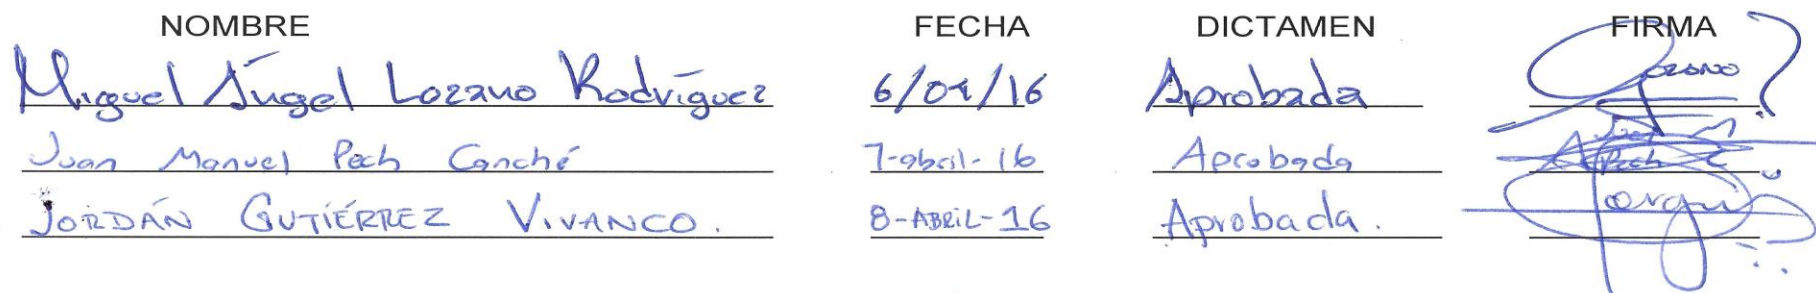 NOMBRE FECHA DICTAMEN FIRMA
Miguel Ángel Lozano Rodríguez 6/04/16 Aprobada Lozano
Juan Manuel Pech Canché 7-abril-16 Aprobada Juan M Pech C
JORDÁN GUTIÉRREZ VIVANCO. 8-ABRIL-16 Aprobada.